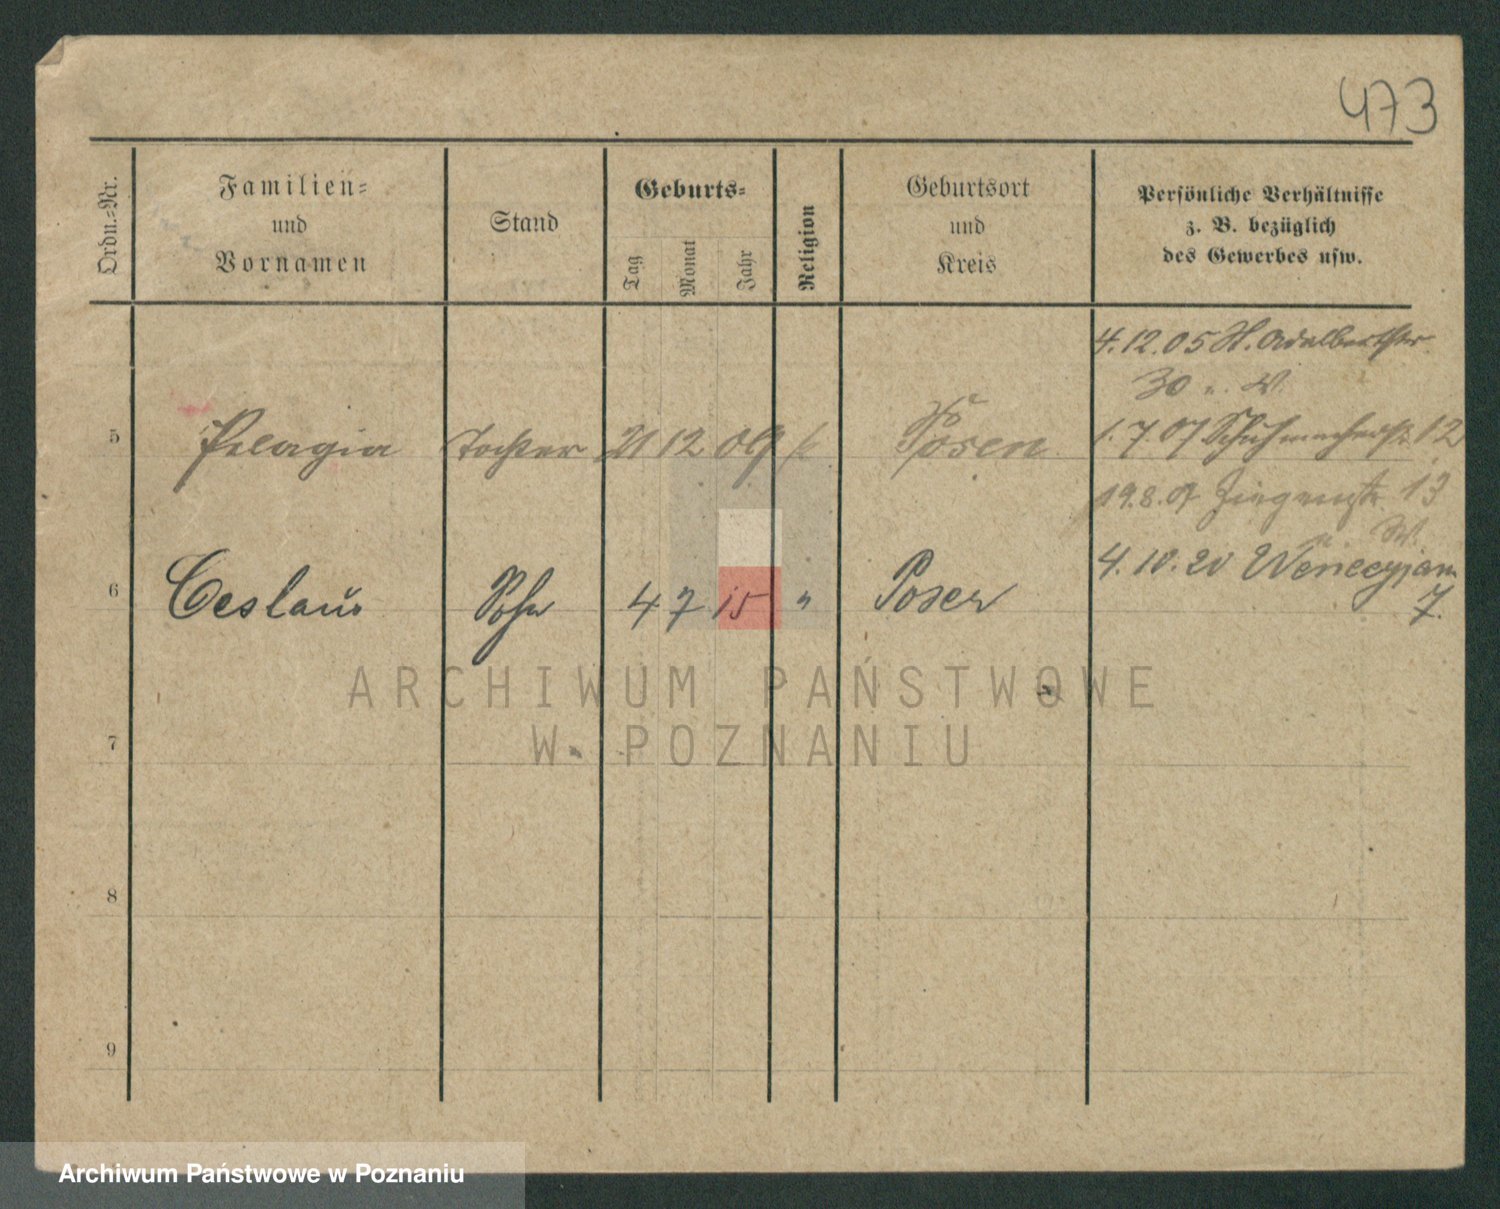 473
Ordn.-Nr.
Familien-
und
Vornamen
Stand
Geburts-
Tag
Monat
Jahr
Religion
Geburtsort
und
Kreis
Persönliche Verhältnisse
z. B. bezüglich
des Gewerbes usw.
4.12.05 H. Adalbertstr
30 u. W.
5 Pelagia Tochter 21 12 09 k Posen 1.7.07 Schuhmacherstr. 12
19.8.07 Ziegenstr. 13
W.
6 Ceslaus Sohn 4 7 15 " Posen 4.10.20 Wenecyjan
7.
7
8
9
ARCHIWUM PAŃSTWOWE
W POZNANIU
Archiwum Państwowe w Poznaniu